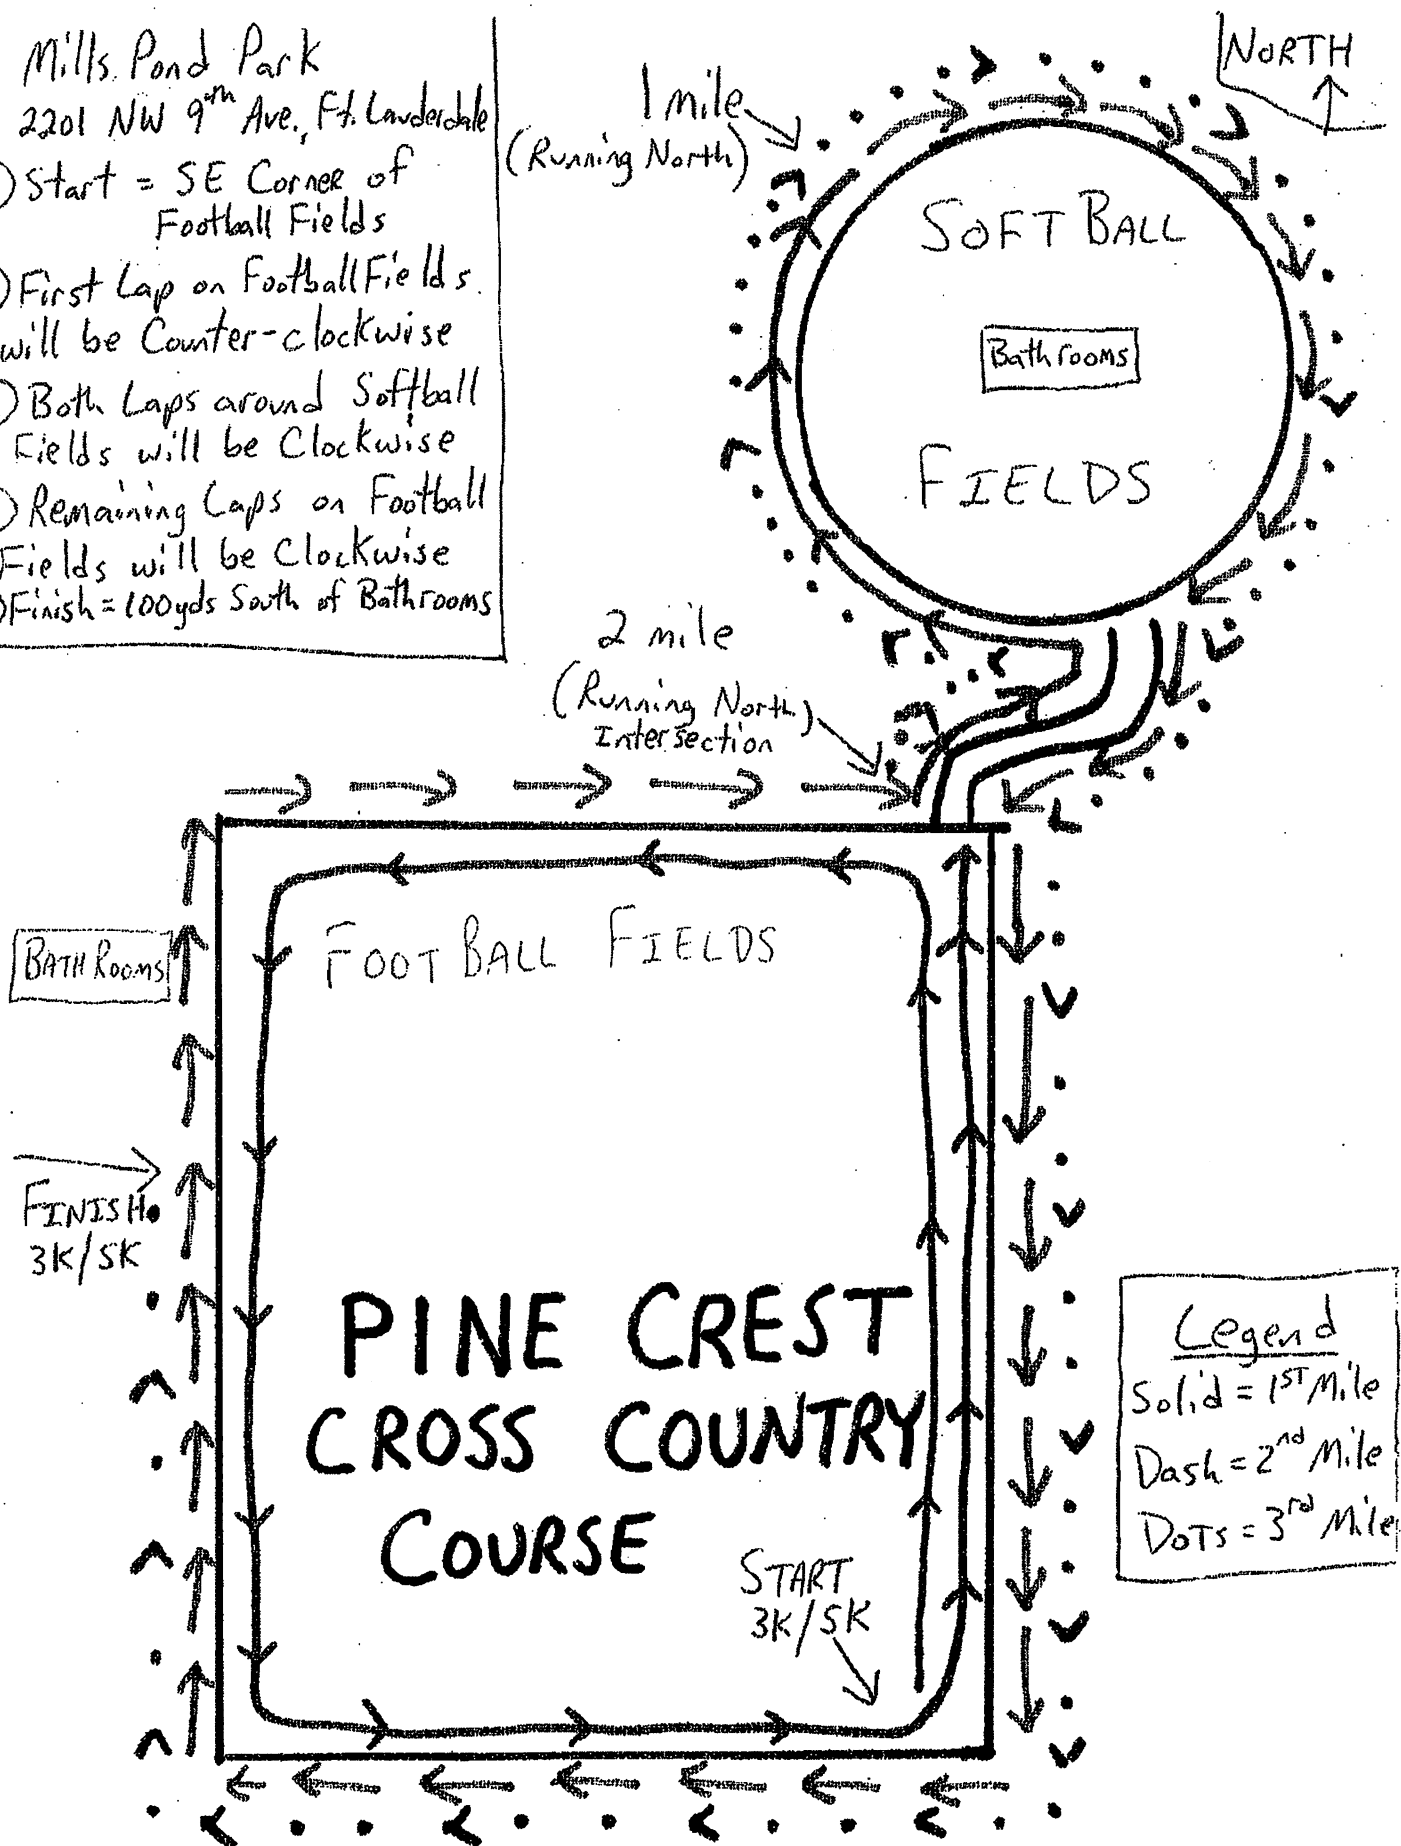 Mills Pond Park
2201 NW 9th Ave., Ft. Lauderdale
) Start = SE Corner of
Football Fields
) First Lap on Football Fields
will be Counter-clockwise
) Both Laps around Softball
Fields will be Clockwise
) Remaining Laps on Football
Fields will be Clockwise
) Finish = 100yds South of Bathrooms
NORTH
1 mile
(Running North)
SOFTBALL
Bathrooms
FIELDS
2 mile
(Running North)
Intersection
FOOTBALL FIELDS
BATHROOMS
FINISH
3K/5K
PINE CREST
CROSS COUNTRY
COURSE
START
3K/5K
Legend
Solid = 1ST Mile
Dash = 2nd Mile
DoTs = 3rd Mile